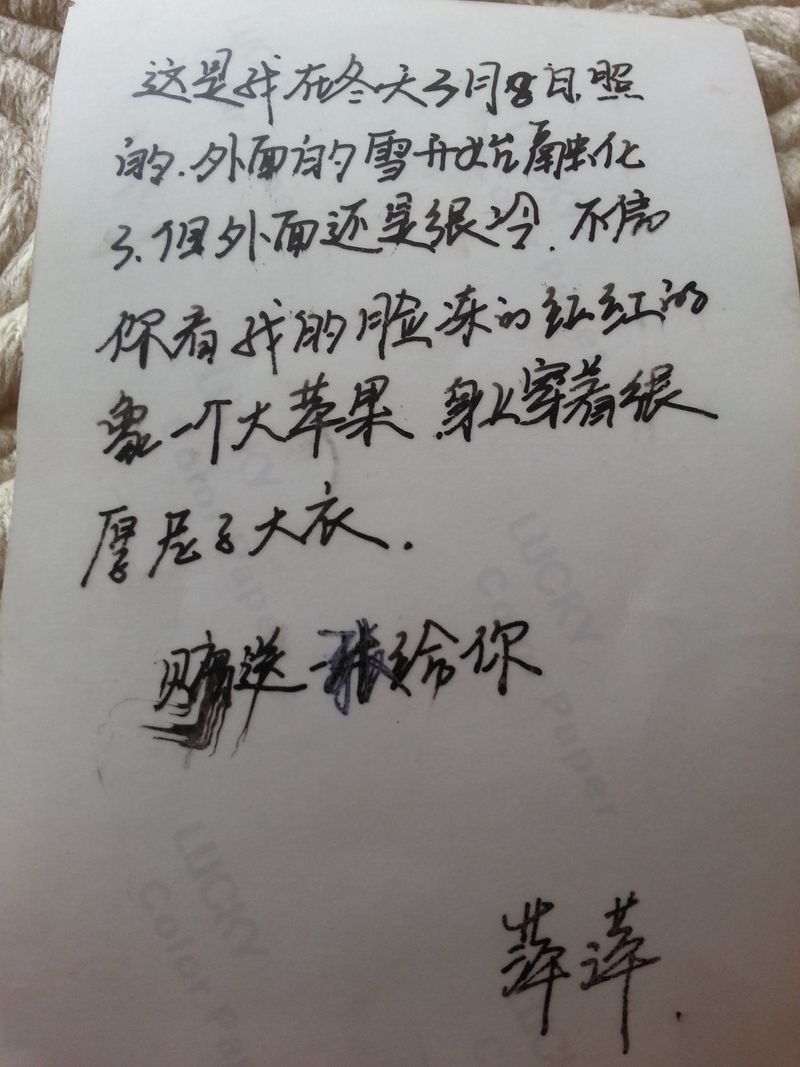 这是我在冬天3月8日照
的.外面的雪开始融化
了.但外面还是很冷.不信
你看我的脸冻的红红的
象一个大苹果.身上穿着很
厚尼子大衣.
赠送一张给你
萍萍.
LUCKY
Color Paper
LUCKY
Color Paper